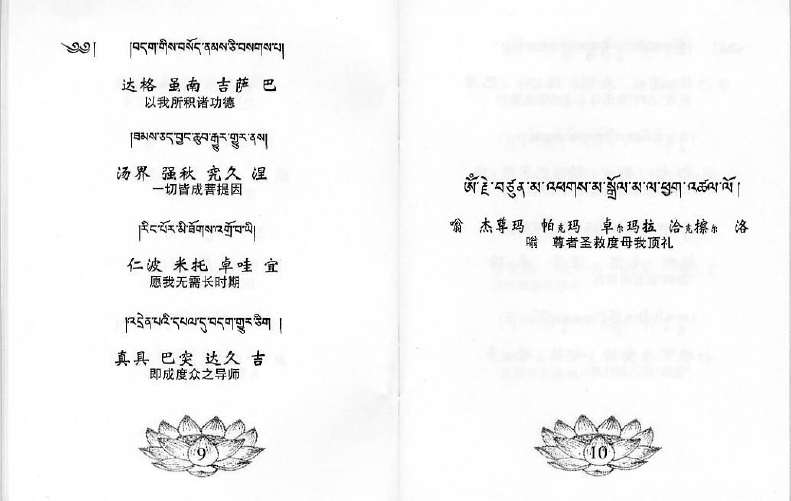 ༄༅། །བདག་གིས་བསོད་ནམས་ཅི་བསགས་པ།
达格 虽南 吉萨 巴
以我所积诸功德
།ཐམས་ཅད་བྱང་ཆུབ་རྒྱུར་གྱུར་ནས།
汤界 强秋 究久 涅
一切皆成菩提因
།རིང་པོར་མི་ཐོགས་འགྲོ་བ་ཡི།
仁波 米托 卓哇 宜
愿我无需长时期
།འདྲེན་པའི་དཔལ་དུ་བདག་གྱུར་ཅིག །
真具 巴突 达久 吉
即成度众之导师
9
ༀ་རྗེ་བཙུན་མ་འཕགས་མ་སྒྲོལ་མ་ལ་ཕྱག་འཚལ་ལོ།
嗡 杰尊玛 帕克玛 卓尔玛拉 洽克擦尔 洛
嗡 尊者圣救度母我顶礼
10